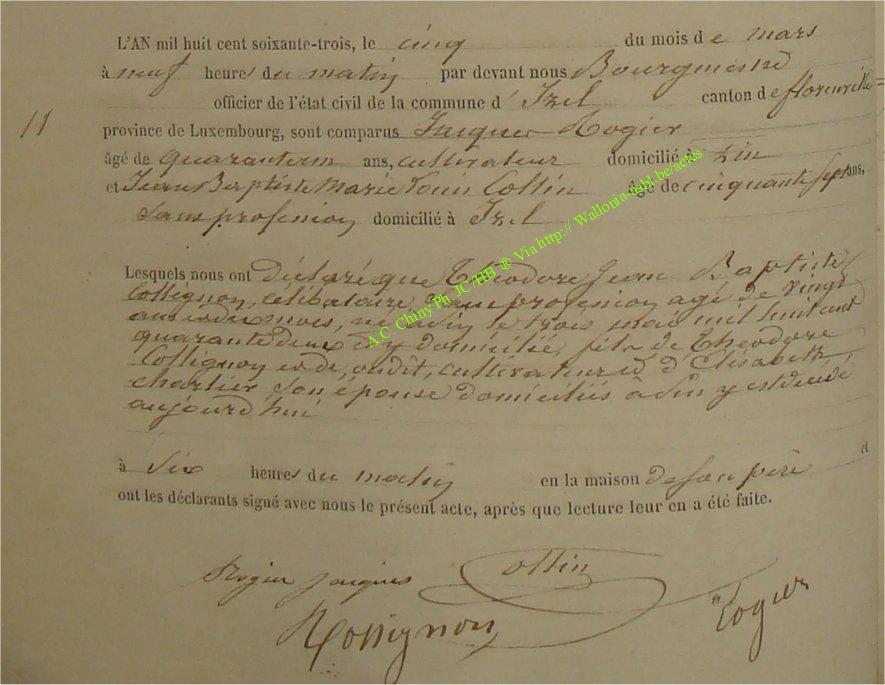 L'AN mil huit cent soixante-trois, le cinq du mois de mars
à neuf heures du matin par devant nous Bourgmestre
officier de l'état civil de la commune d'Izel canton de florenville
11
province de Luxembourg, sont comparus Jacques Rogier
âgé de quarante un ans, cultivateur domicilié à
et Jean Baptiste Marie Louis Collin âgé de cinquante sept ans,
sans profession domicilié à Izel
Lesquels nous ont déclaré que Théodore Jean Baptiste
Collignon, célibataire sans profession agé de vingt
ans et dix mois, né à le trois mai mil huit cent
quarante deux et y domicilié, fils de Théodore
Collignon cultivateur et d'Elisabeth
chartier son épouse domiciliés à y est décédé
aujourd'hui
à six heures du matin en la maison de son père et
ont les déclarants signé avec nous le présent acte, après que lecture leur en a été faite.
Rogier jacques Collin
Rossignon Rogier
A.C. Chiny Ph. JC. HB ® Via http:// Wallonia-asbl.be/actes